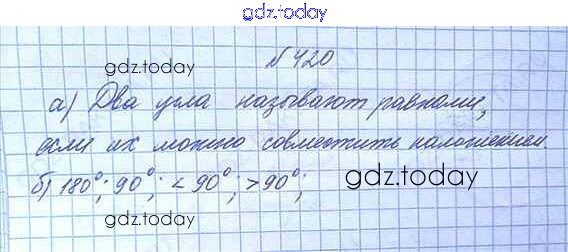 gdz.today
№420
gdz.today
а) Два угла называют равными,
если их можно совместить наложением.
б) 180°; 90°; < 90°; > 90°;
gdz.today
gdz.today